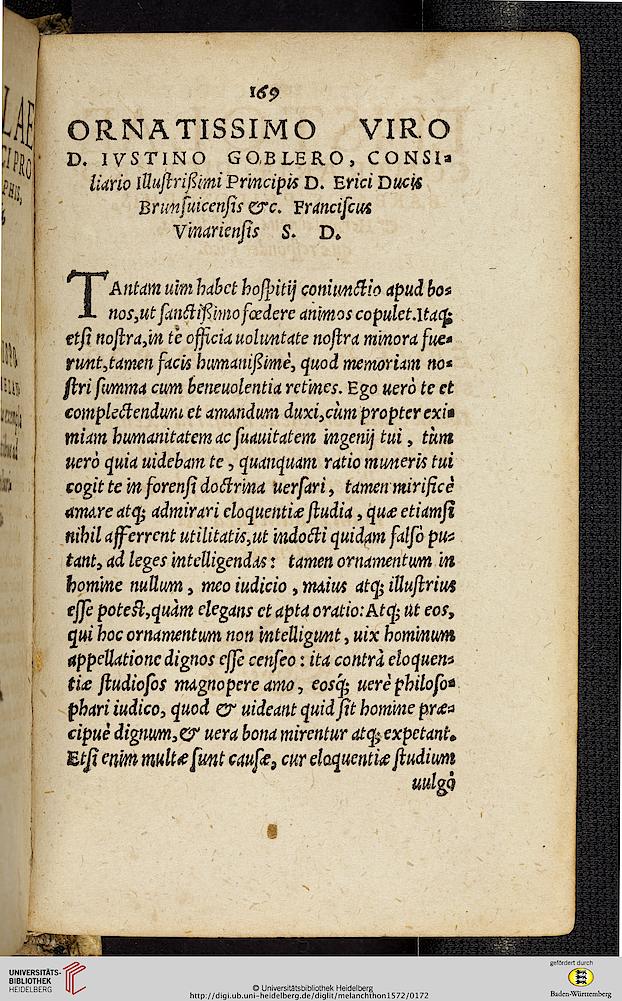 169
ORNATISSIMO VIRO
D. IVSTINO GOBLERO, CONSI=
liario Illuſtrißimi Principis D. Erici Ducis
Brunſuicenſis &c. Franciſcus
Vinarienſis S. D.
TAntam uim habet hoſpitij coniunctio apud bo=
nos, ut ſanctißimo fœdere animos copulet. Itaq;
etſi noſtra, in te officia uoluntate noſtra minora fue=
runt, tamen facis humanißimè, quod memoriam no=
ſtri ſumma cum beneuolentia retines. Ego uerò te et
complectendum et amandum duxi, cùm propter exi=
miam humanitatem ac ſuauitatem ingenij tui, tùm
uerò quia uidebam te, quanquam ratio muneris tui
cogit te in forenſi doctrina uerſari, tamen mirificè
amare atq; admirari eloquentiæ ſtudia, quæ etiamſi
nihil afferrent utilitatis, ut indocti quidam falſò pu=
tant, ad leges intelligendas: tamen ornamentum in
homine nullum, meo iudicio, maius atq; illuſtrius
eſſe poteſt, quàm elegans et apta oratio: Atq; ut eos,
qui hoc ornamentum non intelligunt, uix hominum
appellatione dignos eſſe cenſeo: ita contrà eloquen=
tiæ ſtudioſos magnopere amo, eosq́; uerè philoſo=
phari iudico, quod & uideant quid ſit homine præ=
cipuè dignum, & uera bona mirentur atq; expetant.
Etſi enim multæ ſunt cauſæ, cur eloquentiæ ſtudium
uulgò
LAE
CI PRO
PHIS,
UNIVERSITÄTS-
BIBLIOTHEK
HEIDELBERG
© Universitätsbibliothek Heidelberg
http://digi.ub.uni-heidelberg.de/diglit/melanchthon1572/0172
gefördert durch
Baden-Württemberg